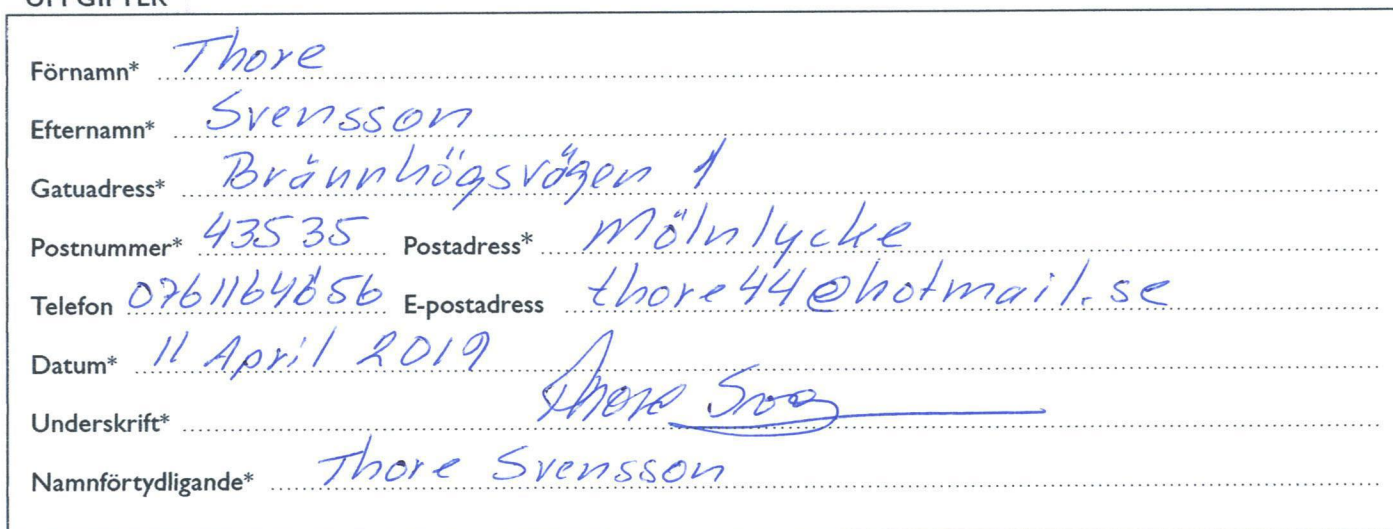 UPPGIFTER
Förnamn* Thore
Efternamn* Svensson
Gatuadress* Brännhögsvägen 1
Postnummer* 43535 Postadress* Mölnlycke
Telefon 0761164656 E-postadress thore44@hotmail.se
Datum* 11 April 2019
Underskrift* Thore
Namnförtydligande* Thore Svensson